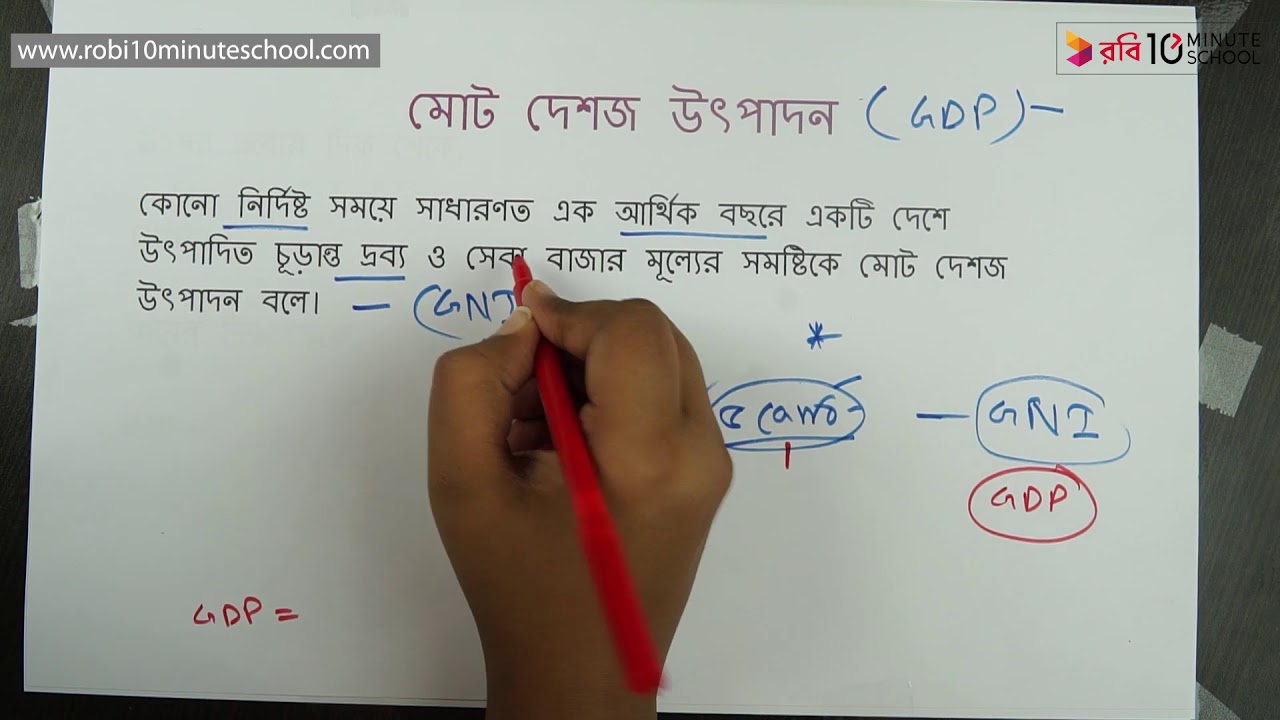 www.robi10minuteschool.com
রবি 10 MINUTE SCHOOL
মোট দেশজ উৎপাদন (GDP) —
কোনো নির্দিষ্ট সময়ে সাধারণত এক আর্থিক বছরে একটি দেশে
উৎপাদিত চূড়ান্ত দ্রব্য ও সেবা বাজার মূল্যের সমষ্টিকে মোট দেশজ
উৎপাদন বলে। — (GNI
*
— GNI
GDP
GDP =